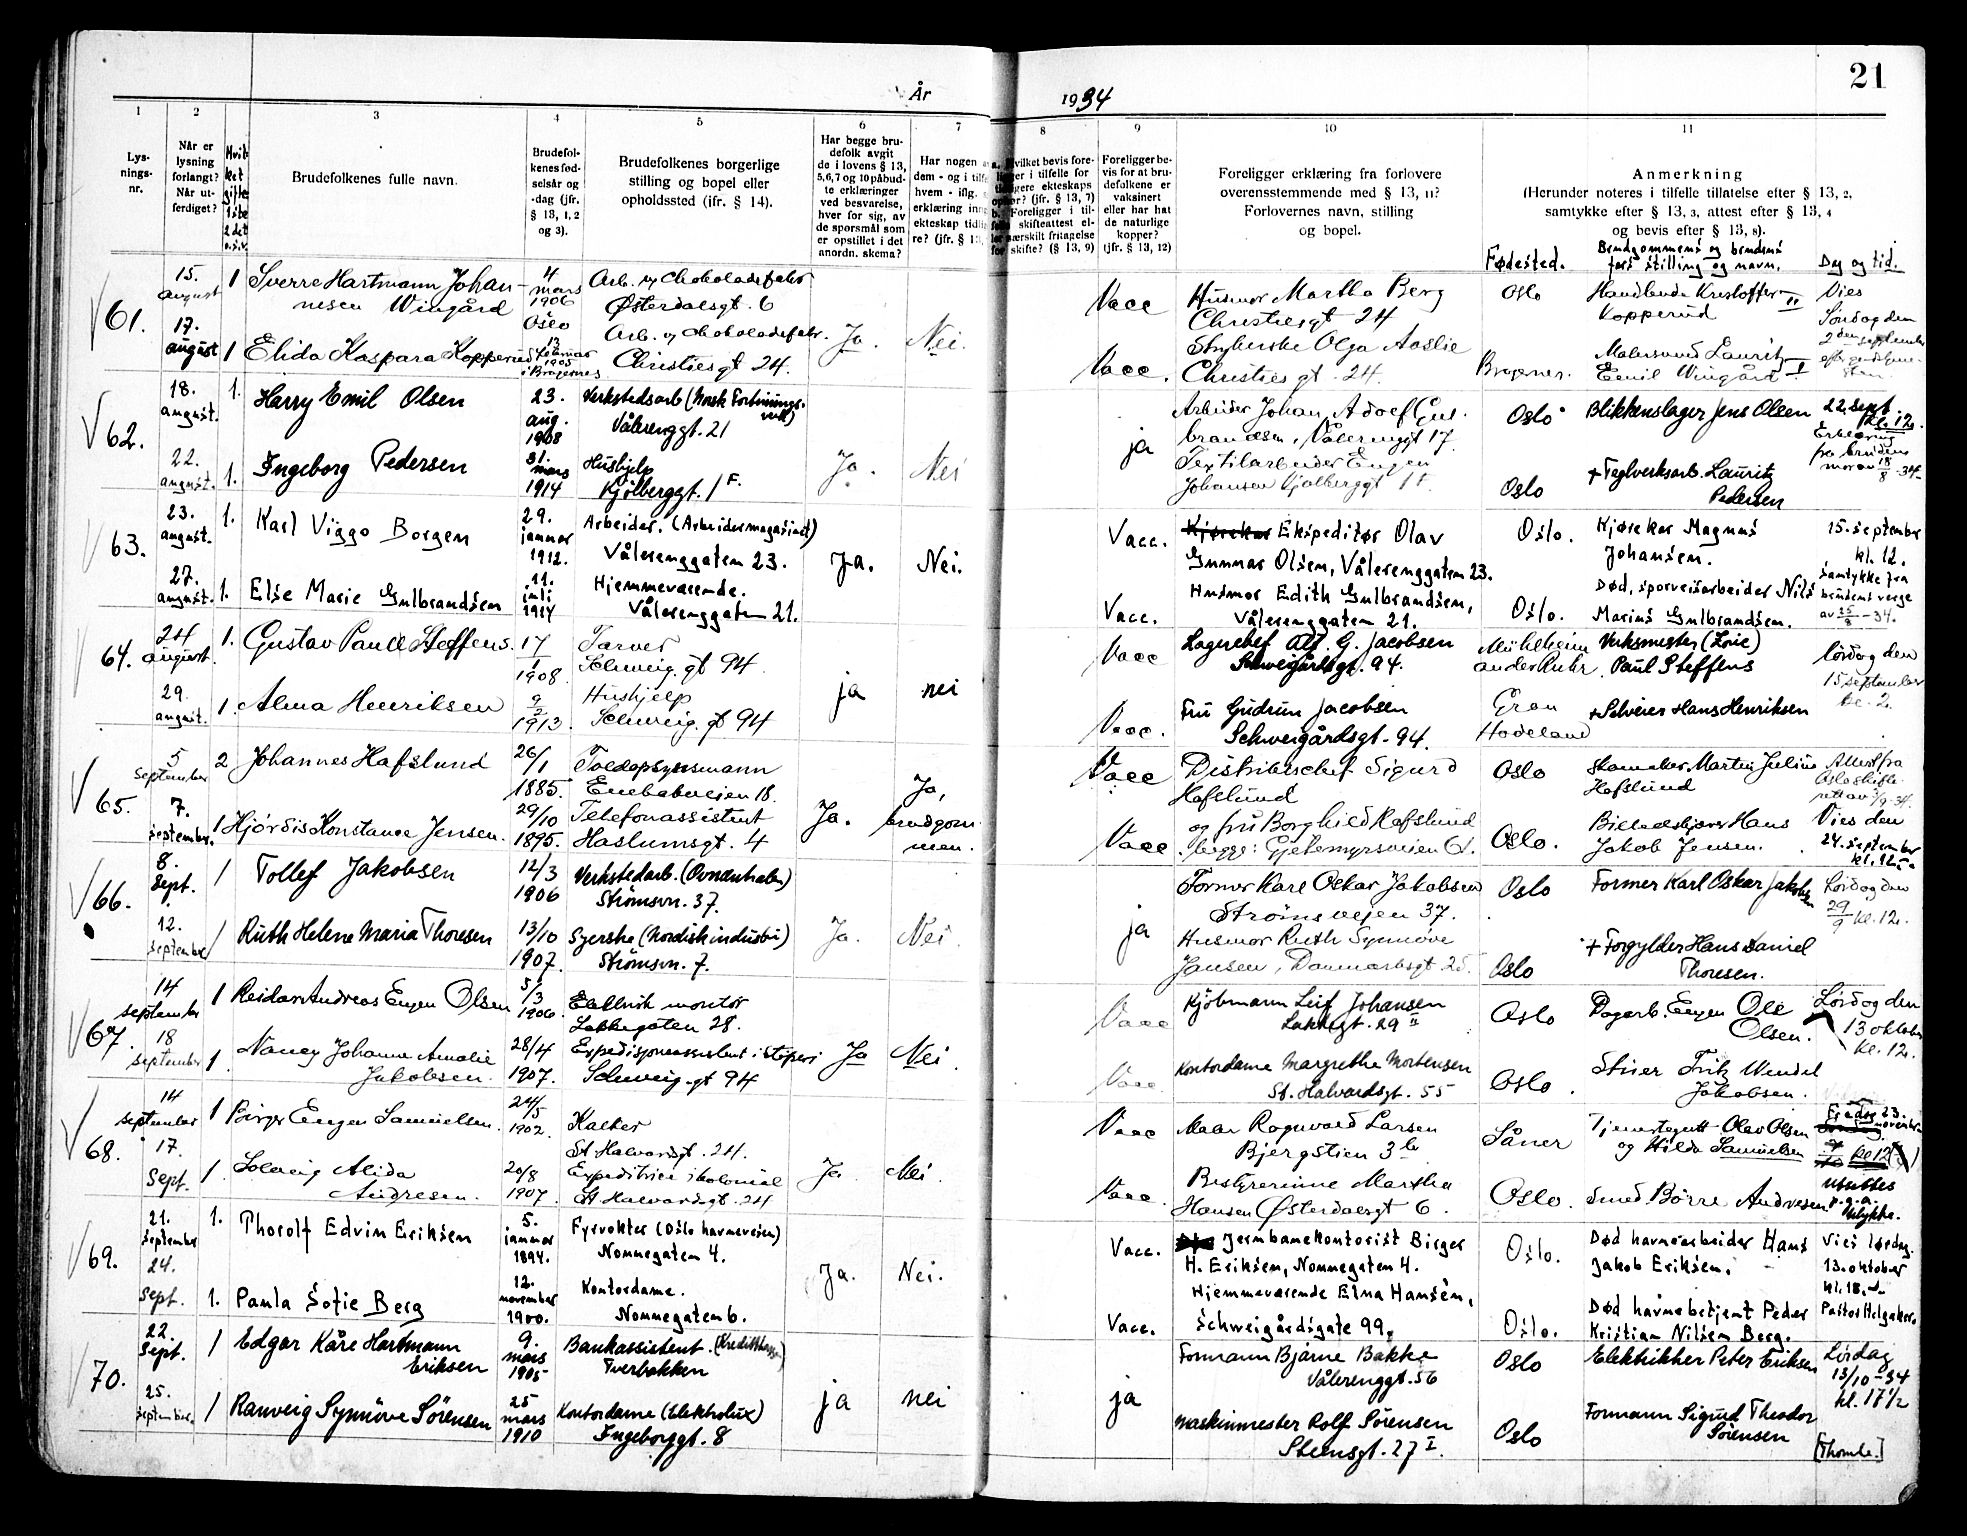 21
År 1934
1 2 3 4 5 6 7 8 9 10 11
Lys-
nings-
nr.
Når er
lysning
forlangt?
Når ut-
ferdiget?
Hvil-
ket
gifte
1ste
2det
o.s.v.
Brudefolkenes fulle navn.
Brudefol-
kenes fød-
selsår og
-dag (jfr.
§ 13, 1, 2
og 3).
Brudefolkenes borgerlige
stilling og bopel eller
opholdssted (jfr. § 14).
Har begge bru-
defolk avgit
de i lovens § 13,
5,6,7 og 10 påbud-
te erklæringer
ved besvarelse,
hver for sig, av
de spørsmål som
er opstillet i det
anordn. skema?
Har nogen
dem - og i tilf
hvem - iflg.
erklæring inn
ekteskap tidl
re? (jfr. § 13,
Foreligger be-
vis for at bru-
defolkene er
vaksinert
eller har hat
de naturlige
kopper?
(jfr. § 13, 12)
Foreligger erklæring fra forlovere
overensstemmende med § 13, 11?
Forlovernes navn, stilling
og bopel.
Anmerkning
(Herunder noteres i tilfelle tillatelse efter § 13, 2,
samtykke efter § 13, 3, attest efter § 13, 4
og bevis efter § 13, 8).
Fødested.
Brudgommens og brudens
fars stilling og navn.
Dag og tid.
61.
15. august 1 Sverre Hartmann Johan-
nesen Wingård
4 mars 1906 Oslo
Arb. v/ Chokoladefabr
Østerdalsgt. 6
Vacc
Husmor Martha Berg
Christiesgt 24
Oslo
Handlende Kristoffer
Kopperud II
Vies
Søndag den
2den september
17. august 1 Elida Kaspara Kopperud
13 februar 1905 i Bragernes
Arb. v/ Chokoladefabr.
Christiesgt 24.
Ja. Nei.
Vacc.
Strykerske Olga Aaslie
Christiesgt. 24.
Bragernes.
Malersvend Lauritz
Emil Wingård I
62.
18. august. 1. Harry Emil Olsen
23. aug. 1908
Verkstedsarb (Norsk Fortinnings-
verk)
Vålerenggt. 21
Arbeider Johan Adolf Gul-
brandsen, Vålerenggt 17.
Oslo
Blikkenslager Jens Olsen
22. sept
kl. 12.
Erklæring
fra brudens
mor av 18/8-34
22. august. 1. Ingeborg Pedersen
31. mars 1914
Hushjelp
Kjølberggt. 1 F.
Ja. Nei
ja
Textilarbeider Eugen
Johansen Kjølberggt 1 F.
Oslo
+ Teglverksarb. Lauritz
Pedersen
63.
23. august. 1. Karl Viggo Borgen
29. januar 1912.
Arbeider. (Arbeidermagasinet)
Vålerenggaten 23.
Ja. Nei.
Vacc.
Kjørekar Ekspeditør Olav
Gunnar Olsen, Vålerenggaten 23.
Oslo.
Kjørekar Magnus
Johansen.
15. september
kl. 12.
Samtykke fra
brudens verge
av 25/8-34.
27. august. 1. Else Marie Gulbrandsen
11. juli 1914
Hjemmeværende.
Vålerenggaten 21.
Vacc.
Husmor Edith Gulbrandsen,
Vålerenggaten 21.
Oslo.
Død, sporveisarbeider Nils
Marius Gulbrandsen.
64.
24 august. 1. Gustav Paull Steffens.
17/1 1908.
Farver
Schweig.gt 94
Vacc
Lagerchef Alf. G. Jacobsen
Schweigårdsgt. 94.
Mühlheim
an der Ruhr.
Verksmester (Loie)
Paul Steffens
lørdag den
15 september
kl. 2.
29. august. 1. Alma Henriksen
9/2 1913.
Hushjelp
Schweig.gt 94
ja nei
Vacc.
Fru Gudrun Jacobsen
Schweigårdsgt. 94.
Gran
Hadeland
+ Selveier Hans Henriksen
65.
5 september 2 Johannes Hafslund
26/1 1885.
Toldopsynsmann
Enebakveien 18.
Vacc
Distriktschef Sigurd
Hafslund
Oslo
Skomaker Martin Julius
Hafslund
Attest fra
Oslo skifte-
rett av 5/9-34.
7. september. 1 Hjørdis Konstance Jensen.
29/10 1895.
Telefonassistent
Haslumsgt. 4
Ja.
Ja,
brudgom
men.
Vacc.
og fru Borghild Hafslund
begge: Gjetemyrsveien 6
Oslo.
Billedskjærer Hans
Jakob Jensen.
Vies den
24. september
kl. 12
66.
8. Sept. 1 Tollef Jakobsen
12/3 1906
Verkstedarb. (Ovncentralen)
Strømsvn. 37.
Former Karl Oskar Jakobsen
Strømsveien 37.
Oslo
Former Karl Oskar Jakobsen
Lørdag den
29/9 kl. 12.
12. september 1 Ruth Helene Maria Thoresen
13/10 1907.
Syerske (Nordisk industri)
Strømsvn. 7.
Ja. Nei.
ja
Husmor Ruth Synnøve
Jansen, Danmarksgt 25.
Oslo
+ Forgylder Hans Daniel
Thoresen.
67.
14 september 1 Reidar Andreas Eugen Olsen
5/3 1906.
Elektrisk montør
Lakkegaten 28.
Vacc
Kjøbmann Leif Johansen
Lakkegt. 29 II
Oslo
Dagarb. Eugen Ole
Olsen.
Lørdag den
13 oktober
kl. 12.
18 september 1. Nancy Johanne Amalie
Jakobsen.
28/4 1907.
Expedisjonsassistent i steperi
Schweig.gt 94
Ja Nei
Vacc
Kontordame Margrethe Mortensen
St. Halvardsgt. 55
Oslo.
Stuer Fritz Wendel
Jakobsen.
68.
14 september 1 Birger Eugen Samuelsen.
24/5 1902.
Kalker
St Halvardgt. 24.
Vacc
Maler Ragnvald Larsen
Bjergstien 3 b
Såner
Tjenestegutt Olav Olsen
og Hilda Samuelsen
Fredag 23.
november
kl 12
17. Sept. 1. Solveig Alida
Andresen.
20/8 1907.
Expeditrice i kolonial
St Halvardsgt. 24
Ja Nei.
Vacc.
Bestyrerinne Martha
Hansen Østerdalsgt 6.
Oslo.
Smed Børre Andresen
Utsettes
p.g.a.
ulykke.
69.
21. September 1. Thorolf Edvin Eriksen
5. januar 1894.
Fyrvokter (Oslo havnevesen)
Nonnegaten 4.
Vacc.
Jernbanekontorist Birger
H. Eriksen, Nonnegaten 4.
Oslo.
Død havnearbeider Hans
Jakob Eriksen.
Vies lørdag.
13. oktober
kl. 18.
24. Sept. 1. Paula Sofie Berg
12. november 1900.
Kontordame.
Nonnegaten 6.
Ja. Nei.
Vacc.
Hjemmeværende Elna Hansen,
Schweigårdsgate 99.
Oslo.
Død havnebetjent Peder
Kristian Nilsen Berg.
Pastor Helgaker.
70.
22. Sept. 1 Edgar Kåre Hartmann
Eriksen
9. mars 1905
Bankassistent. (Kreditkassen)
Tverbakken
Formann Bjarne Bakke
Vålerenggt. 56
Oslo
Elektrikker Peter Eriksen
Lørdag
13/10-34
kl. 17½
25. September. 1 Ranveig Synnøve Sørensen
25 mars 1910
Kontordame (Elektrolux)
Ingeborggt. 8
ja nei
ja
Maskinmester Rolf Sørensen
Stensgt. 27 I.
Oslo
Formann Sigrud Theodor
Sørensen
[Thomle.]